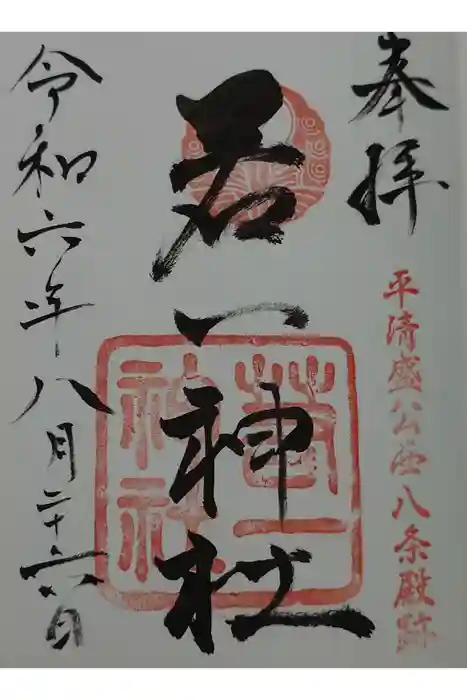 奉拝
平清盛公西八条殿跡
若一神社
若一神社
令和六年八月二十六日